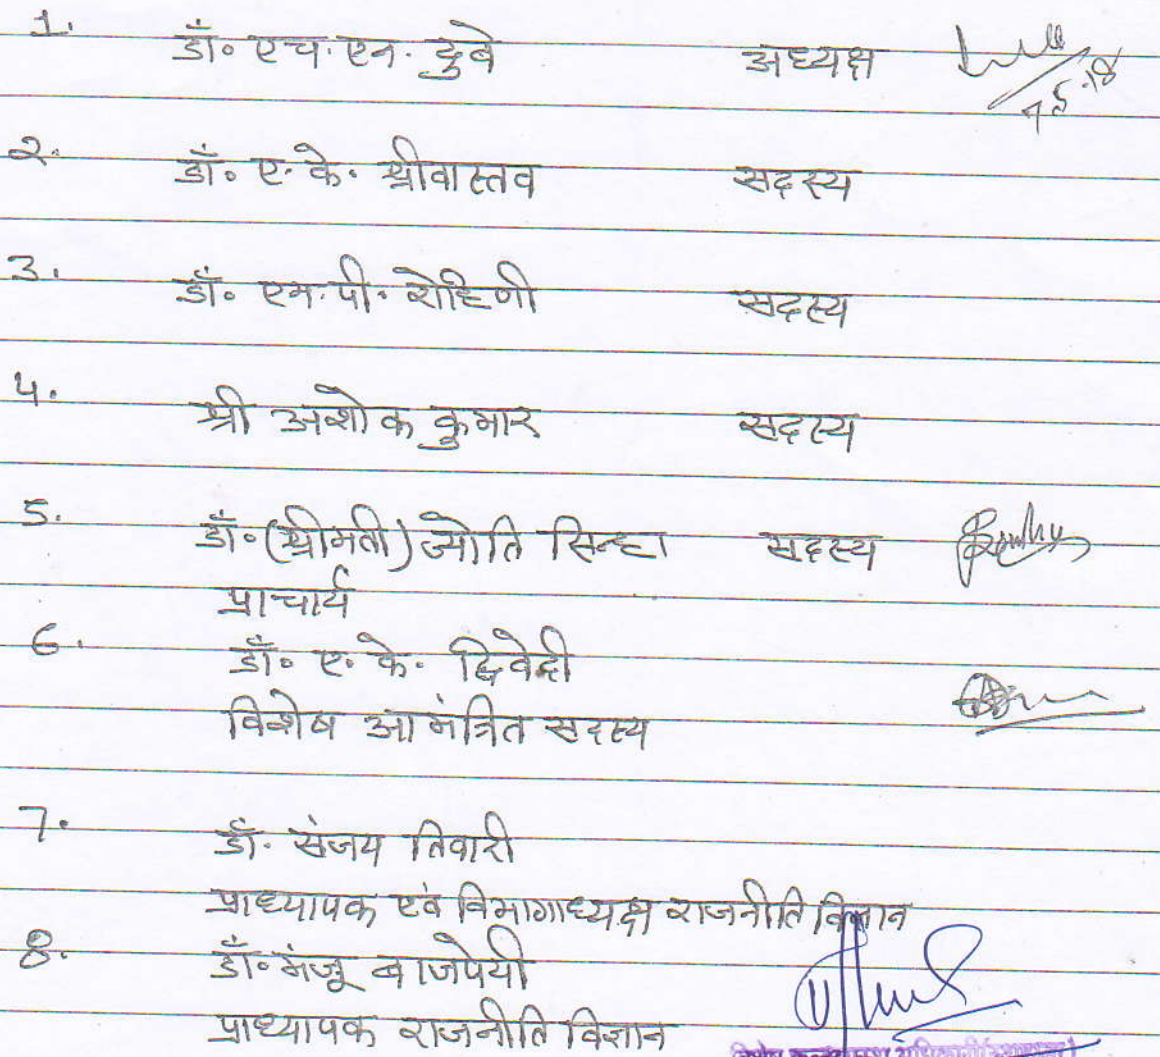 1. डॉ. एच. एन. दुबे अध्यक्ष
2. डॉ. ए. के. श्रीवास्तव सदस्य
3. डॉ. एम. पी. रोहिणी सदस्य
4. श्री अशोक कुमार सदस्य
5. डॉ. (श्रीमती) ज्योति सिन्हा सदस्य
प्राचार्य
6. डॉ. ए. के. द्विवेदी
विशेष आमंत्रित सदस्य
7. डॉ. संजय तिवारी
प्राध्यापक एवं विभागाध्यक्ष राजनीति विज्ञान
8. डॉ. मंजू बाजपेयी
प्राध्यापक राजनीति विज्ञान